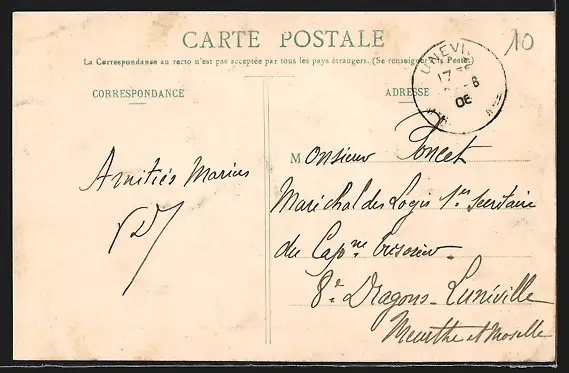 CARTE POSTALE
La Correspondance au recto n'est pas acceptée par tous les pays étrangers. (Se renseigner à la Poste.)
CORRESPONDANCE
ADRESSE
10
LUNÉVILLE
17
6
06
Amitiés Marius
Monsieur Poncet
Maréchal des Logis 1er Secrétaire
du Capne Trésorier
8e Dragons - Lunéville
Meurthe et Moselle